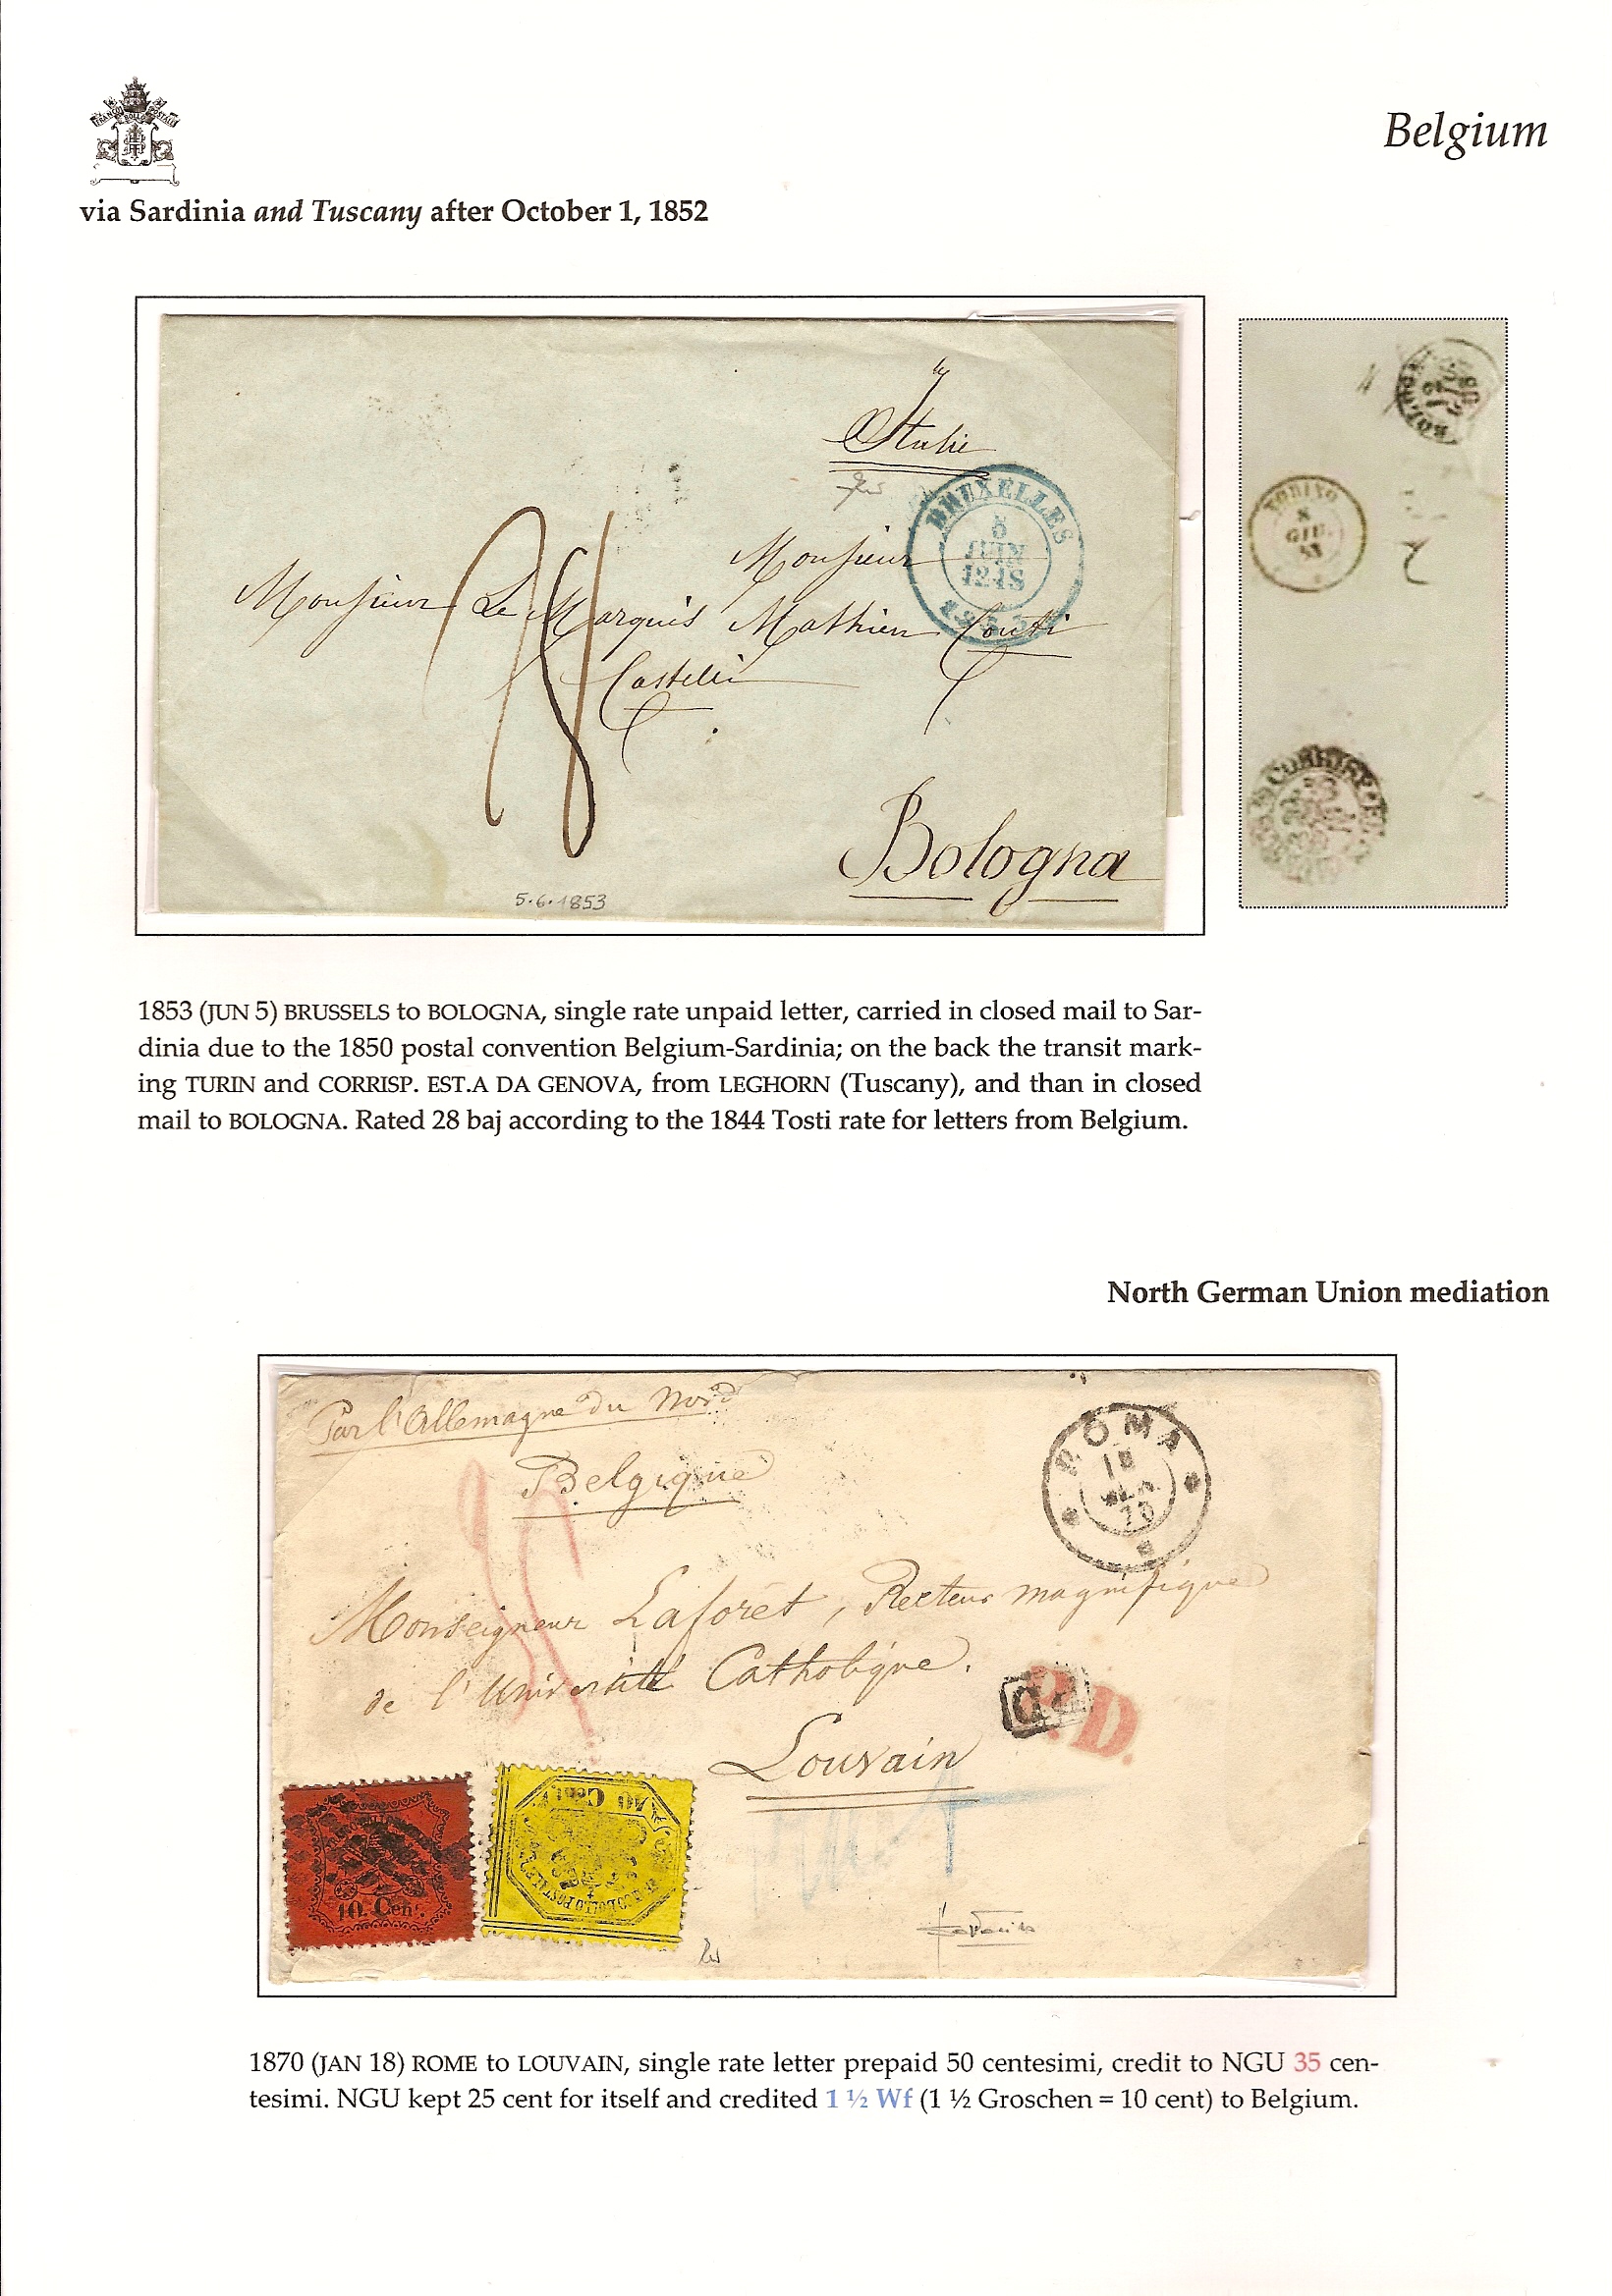 FRANCO BOLLO POSTALE
Belgium
via Sardinia and Tuscany after October 1, 1852
Italie
BRUXELLES
5
JUIN
12-1S
1853
Monsieur
Monsieur Le Marquis Mathieu Conti
Castelli
28
Bologna
5.6.1853
BOLOGNA
TORINO
8
GIU.
53
2
CORRISP
1853 (JUN 5) BRUSSELS to BOLOGNA, single rate unpaid letter, carried in closed mail to Sar-
dinia due to the 1850 postal convention Belgium-Sardinia; on the back the transit mark-
ing TURIN and CORRISP. EST.A DA GENOVA, from LEGHORN (Tuscany), and than in closed
mail to BOLOGNA. Rated 28 baj according to the 1844 Tosti rate for letters from Belgium.
North German Union mediation
Par l'Allemagne du Nord
Belgique
ROMA
18
70
35
Monseigneur Laforêt, Recteur magnifique
de l'Université Catholique.
P.D.
Louvain
10. Cent.
40 Cent.
1870 (JAN 18) ROME to LOUVAIN, single rate letter prepaid 50 centesimi, credit to NGU 35 cen-
tesimi. NGU kept 25 cent for itself and credited 1 ½ Wf (1 ½ Groschen = 10 cent) to Belgium.